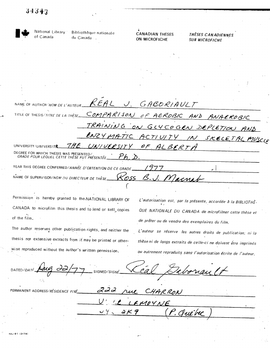 34343
National Library of Canada
Bibliothèque nationale du Canada
CANADIAN THESES ON MICROFICHE
THÈSES CANADIENNES SUR MICROFICHE
NAME OF AUTHOR/NOM DE L'AUTEUR RÉAL J. GABORIAULT
TITLE OF THESIS/TITRE DE LA THÈSE COMPARISON OF AEROBIC AND ANAEROBIC
TRAINING ON GLYCOGEN DEPLETION AND
ENZYMATIC ACTIVITY IN SKELETAL MUSCLE
UNIVERSITY/UNIVERSITÉ THE UNIVERSITY OF ALBERTA
DEGREE FOR WHICH THESIS WAS PRESENTED/
GRADE POUR LEQUEL CETTE THÈSE FUT PRÉSENTÉE Ph.D.
YEAR THIS DEGREE CONFERRED/ANNÉE D'OBTENTION DE CE GRADE 1977
NAME OF SUPERVISOR/NOM DU DIRECTEUR DE THÈSE Ross B.J.
Permission is hereby granted to the NATIONAL LIBRARY OF
CANADA to microfilm this thesis and to lend or sell copies of
the film.
The author reserves other publication rights, and neither the
thesis nor extensive extracts from it may be printed or other-
wise reproduced without the author's written permission.
L'autorisation est, par la présente, accordée à la BIBLIOTHÈ-
QUE NATIONALE DU CANADA de microfilmer cette thèse et
de prêter ou de vendre des exemplaires du film.
L'auteur se réserve les autres droits de publication; ni la
thèse ni de longs extraits de celle-ci ne doivent être imprimés
ou autrement reproduits sans l'autorisation écrite de l'auteur.
DATED/DATÉ Aug 22/77 SIGNED/SIGNÉ Réal Gaboriault
PERMANENT ADDRESS/RÉSIDENCE FIXE 222 rue CHARRON
LEMOYNE
(P. Québec)